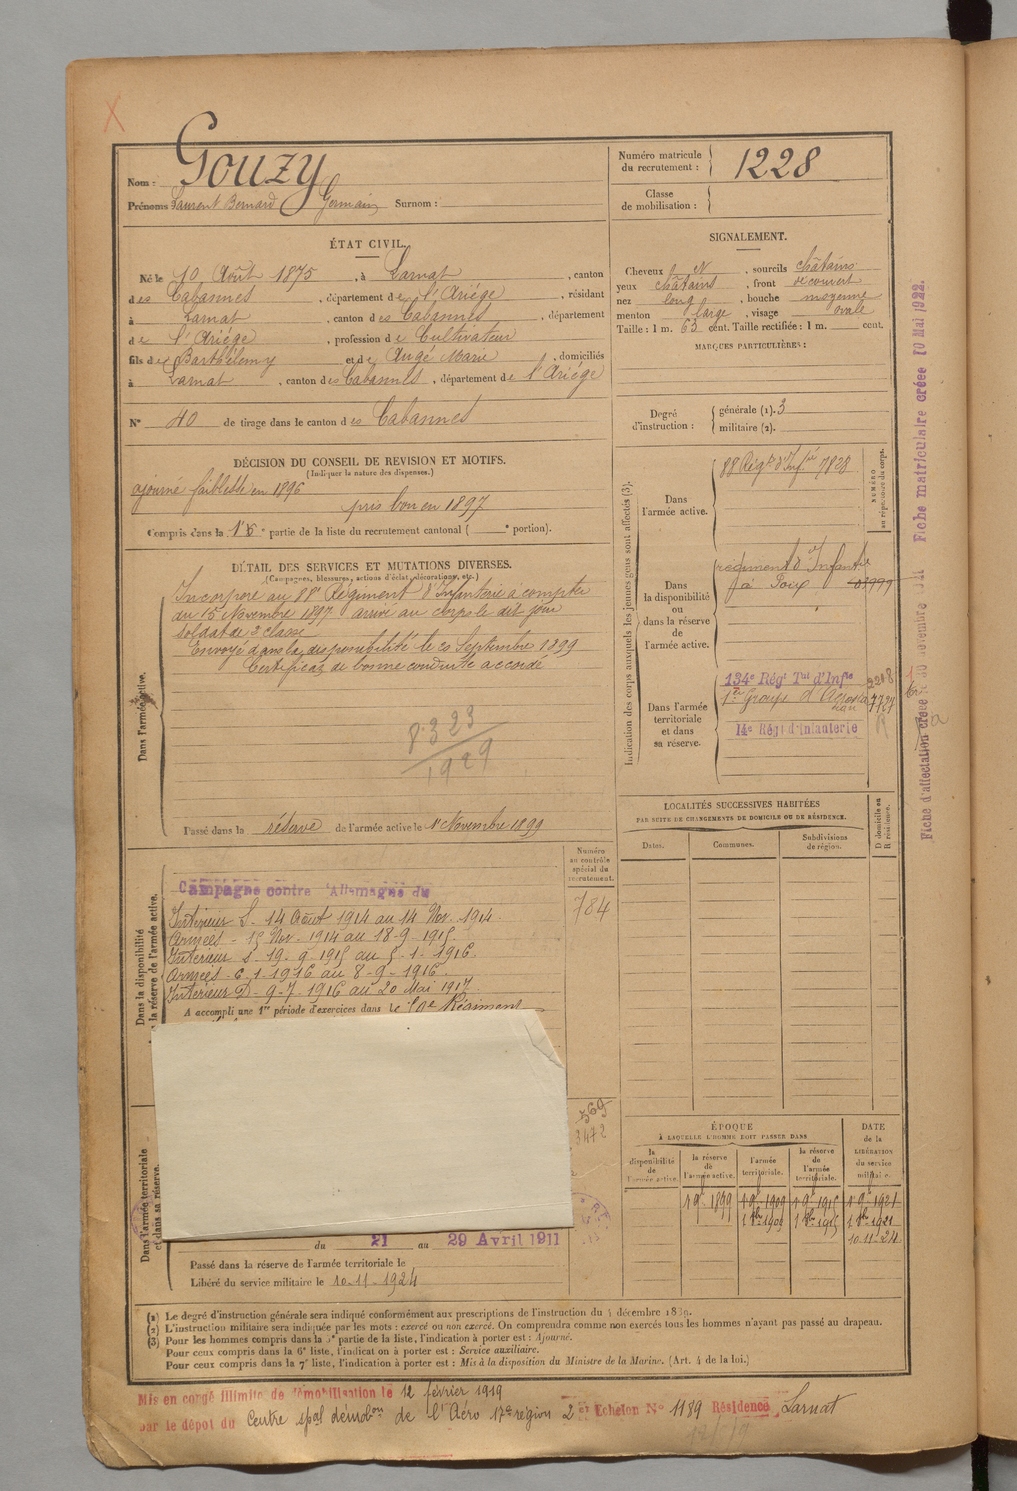 Nom : GOUZY
Prénoms Laurent Bernard Germain Surnom :
Numéro matricule du recrutement : 1228
Classe de mobilisation :
ÉTAT CIVIL.
Né le 10 Août 1875, à Larnat, canton
des Cabannes, département de l'Ariège, résidant
à Larnat, canton des Cabannes, département
de l'Ariège, profession de Cultivateur
fils de Barthélemy et de Augé Marie, domiciliés
à Larnat, canton des Cabannes, département de l'Ariége
N° 40 de tirage dans le canton des Cabannes
DÉCISION DU CONSEIL DE REVISION ET MOTIFS.
(Indiquer la nature des dispenses.)
ajourné faiblesse en 1896
pris bon en 1897
Compris dans la partie de la liste du recrutement cantonal ( portion).
DÉTAIL DES SERVICES ET MUTATIONS DIVERSES.
(Campagnes, blessures, actions d'éclat, décorations, etc.)
Dans l'armée active.
Incorporé au 88e Régiment d'Infanterie à compter
du 15 Novembre 1897 arrivé au corps le dit jour
soldat de 2e classe
Envoyé dans la disponibilité le 20 Septembre 1899
Certificat de bonne conduite accordé
8323
1929
Passé dans la réserve de l'armée active le 1er Novembre 1899
Dans la disponibilité
la réserve de l'armée active.
Numéro au contrôle spécial du recrutement.
784
Campagne contre l'Allemagne du
Intérieur S. 14 Août 1914 au 14 Nov. 1914.
Armées - 15 Nov. 1914 au 18-9-1915
Intérieur S - 19-9-1915 au 5-1-1916.
Armées - 6-1-1916 au 8-9-1916.
Intérieur D - 9-7-1916 au 20 Mai 1917
A accompli une 1re période d'exercices dans le Régiment
569
3472
Dans l'armée territoriale
et dans sa réserve.
du 21 au 29 Avril 1911
Passé dans la réserve de l'armée territoriale le
Libéré du service militaire le 10-11-1924
SIGNALEMENT.
Cheveux N, sourcils châtains
yeux châtains, front découvert
nez long, bouche moyenne
menton large, visage ovale
Taille : 1 m. 63 cent. Taille rectifiée : 1 m. cent.
MARQUES PARTICULIÈRES :
Degré d'instruction : générale (1). 3
militaire (2).
Indication des corps auxquels les jeunes gens sont affectés (3).
NUMÉRO au répertoire du corps.
Dans l'armée active.
88 Régt d'Infie 7828
Dans la disponibilité ou dans la réserve de l'armée active.
régiment d'Infantie
à Foix 03999
Dans l'armée territoriale et dans sa réserve.
134e Régt Tal d'Infie 2208
1er Groupe d'Aérostation 7727
14e Régt d'infanterie
LOCALITÉS SUCCESSIVES HABITÉES
PAR SUITE DE CHANGEMENTS DE DOMICILE OU DE RÉSIDENCE.
Dates.
Communes.
Subdivisions de région.
D domicile ou R résidence.
ÉPOQUE
À LAQUELLE L'HOMME DOIT PASSER DANS
la disponibilité de l'armée active.
la réserve de l'armée active.
l'armée territoriale.
la réserve de l'armée territoriale.
DATE de la LIBÉRATION du service militaire.
1 9e 1899
1 9e 1909
1 9e 1915
1 9e 1921
1 8e 1909
1 8e 1915
1 8e 1921
10-11-24
Fiche d'affectation créée 30 Novembre 1921 Fiche matriculaire créée 10 Mai 1922.
(1) Le degré d'instruction générale sera indiqué conformément aux prescriptions de l'instruction du 4 décembre 1889.
(2) L'instruction militaire sera indiquée par les mots : exercé ou non exercé. On comprendra comme non exercés tous les hommes n'ayant pas passé au drapeau.
(3) Pour les hommes compris dans la 5e partie de la liste, l'indication à porter est : Ajourné.
Pour ceux compris dans la 6e liste, l'indication à porter est : Service auxiliaire.
Pour ceux compris dans la 7e liste, l'indication à porter est : Mis à la disposition du Ministre de la Marine. (Art. 4 de la loi.)
Mis en congé illimité de démobilisation le 12 février 1919
par le dépôt du Centre spal démobon de l'Aéro 17e région 2 Echelon N° 1189 Résidence Larnat